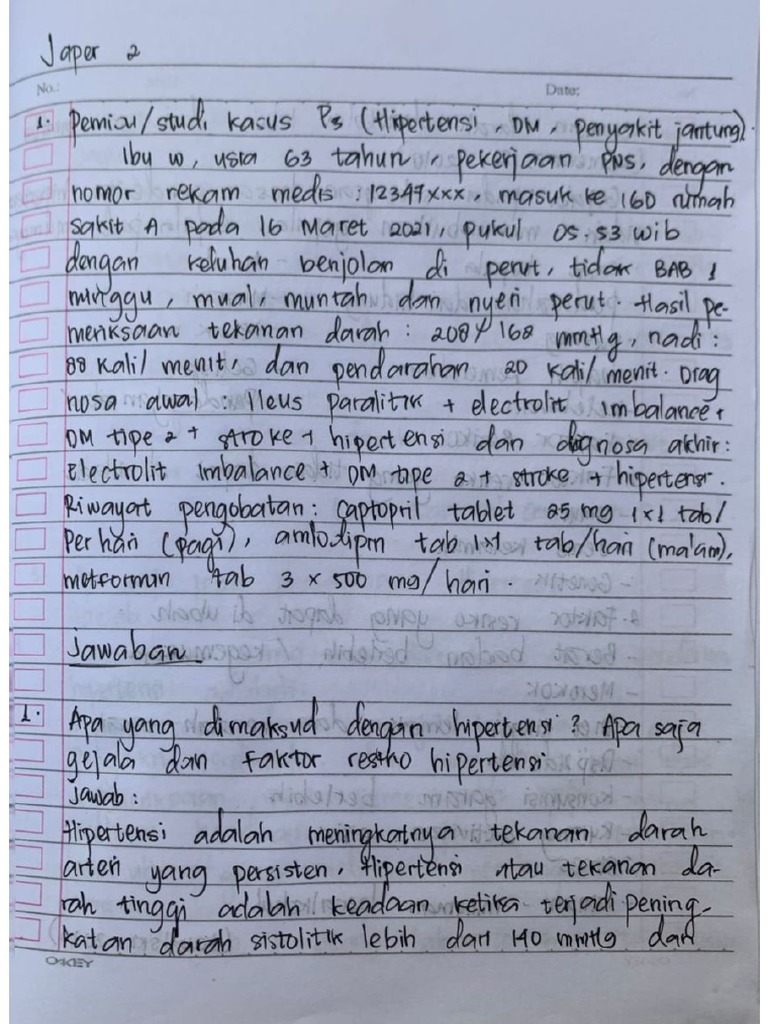 Japer 2
No.: Date:
1. Pemicu/studi kasus P3 (Hipertensi, DM, penyakit jantung).
Ibu W, usia 63 tahun, pekerjaan PNS, dengan
nomor rekam medis : 12347xxx, masuk ke IGD rumah
sakit A pada 16 Maret 2021, pukul 05.53 wib
dengan keluhan benjolan di perut, tidak BAB 1
minggu, mual, muntah dan nyeri perut. Hasil pe-
meriksaan tekanan darah : 208/168 mmHg, nadi :
88 kali/menit, dan pendarahan 20 kali/menit. Diag
nosa awal : Ileus paralitik + electrolit imbalance +
DM tipe 2 + stroke + hipertensi dan diagnosa akhir :
Electrolit imbalance + DM tipe 2 + stroke + hipertensi.
Riwayat pengobatan : Captopril tablet 25 mg 1x1 tab/
per hari (pagi), amlodipin tab 1x1 tab/hari (malam),
metformin tab 3 x 500 mg/hari.
Jawaban
1. Apa yang dimaksud dengan hipertensi? Apa saja
gejala dan faktor resiko hipertensi
Jawab :
Hipertensi adalah meningkatnya tekanan darah
arteri yang persisten, Hipertensi atau tekanan da-
rah tinggi adalah keadaan ketika terjadi pening-
katan darah sistolitik lebih dari 140 mmHg dan
OKEY